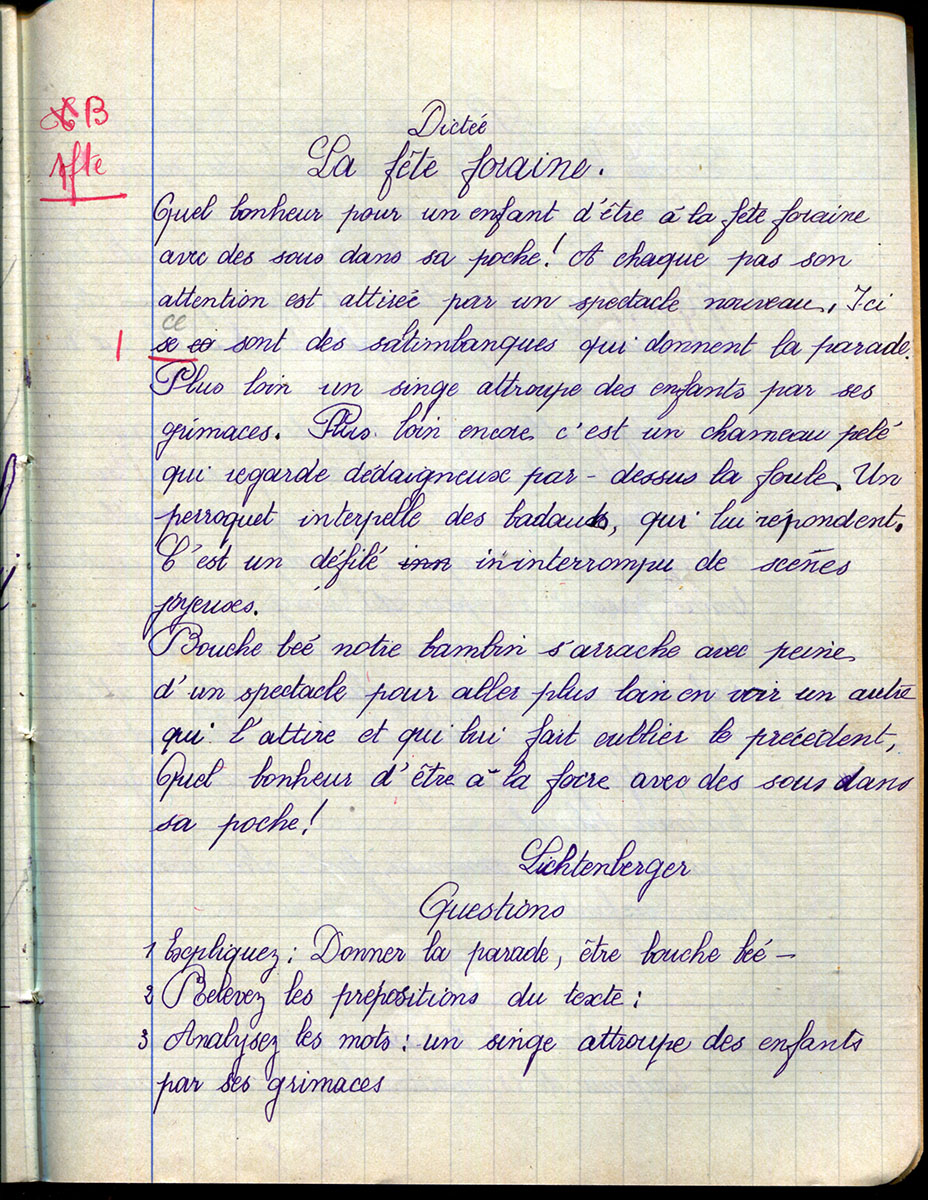 B
1fte
Dictée
La fête foraine.
Quel bonheur pour un enfant d'être à la fête foraine
avec des sous dans sa poche! A chaque pas son
attention est attirée par un spectacle nouveau. Ici
ce
se co sont des satimbanques qui donnent la parade.
1
Plus loin un singe attroupe des enfants par ses
grimaces. Plus loin encore c'est un chameau pelé
qui regarde dédaigneux par-dessus la foule. Un
perroquet interpelle des badauds, qui lui répondent.
C'est un défilé inn ininterrompu de scènes
joyeuses.
Bouche beé notre bambin s'arrache avec peine
d'un spectacle pour aller plus loin en voir un autre
qui l'attire et qui lui fait oublier le précédent,
Quel bonheur d'être à la foire avec des sous dans
sa poche!
Lichtenberger
Questions
1 Expliquez: Donner la parade, être bouche beé —
2 Relevez les prépositions du texte:
3 Analysez les mots: un singe attroupe des enfants
par ses grimaces